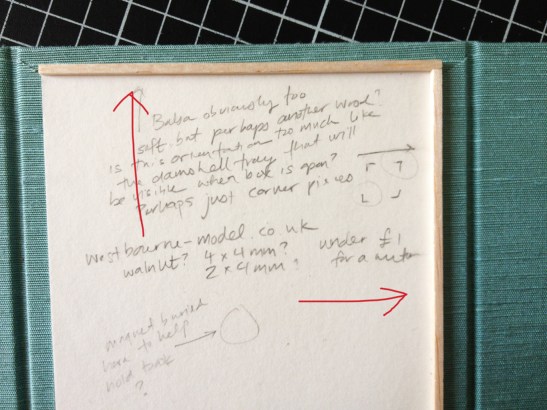 Balsa obviously too
soft, but perhaps another wood?
is this orientation too much like
the clamshell tray that will
be visible when box is open?
Perhaps just corner pieces
westbourne-model.co.uk
walnut? 4 x 4 mm? under £1
2 x 4 mm? for a metre
magnet buried
here to help
hold book
?